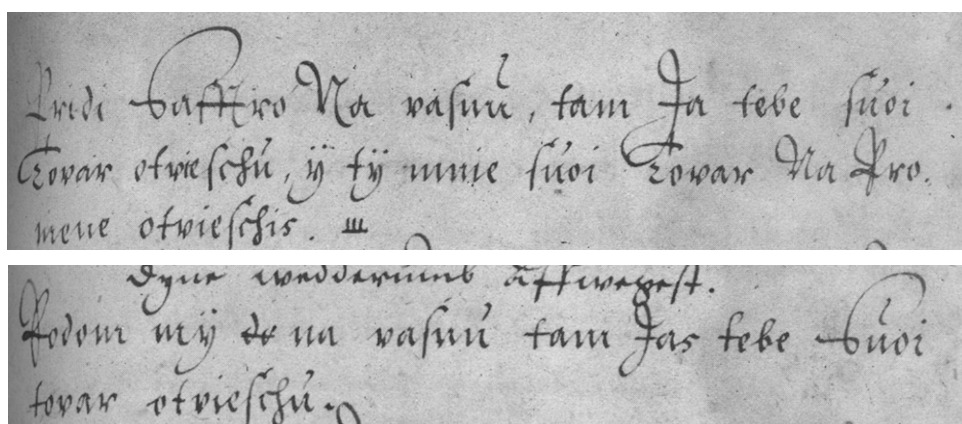 Pridi Safftro Na vasnu, tam Ja tebe suoi.
Tovar otvieschu, ÿ tÿ mnie suoi Tovar Na Pro.
mene otvieschis.
dyne wedderumb affweyest.
Podom mÿ na vasnu tam Jas tebe Suoi
tovar otvieschu.